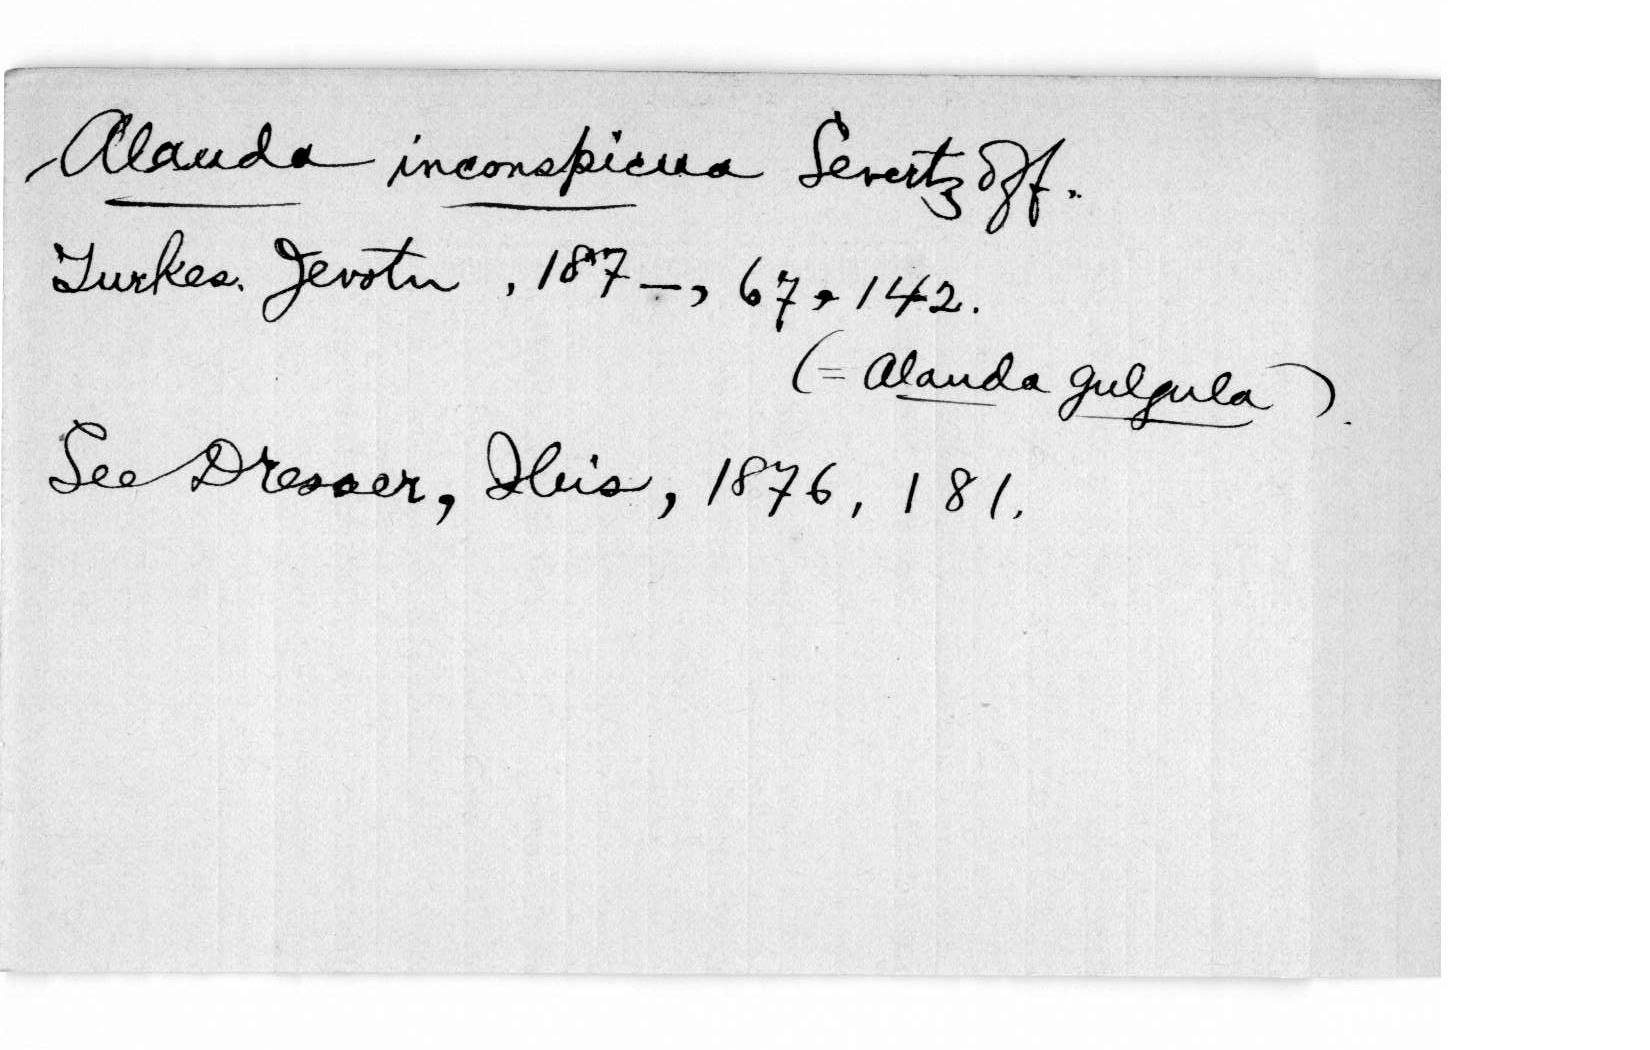 Alauda inconspicua Severtzoff.
Turkes. Jevotn, 187-, 67, 142.
(= Alauda gulgula).
See Dresser, Ibis, 1876, 181.